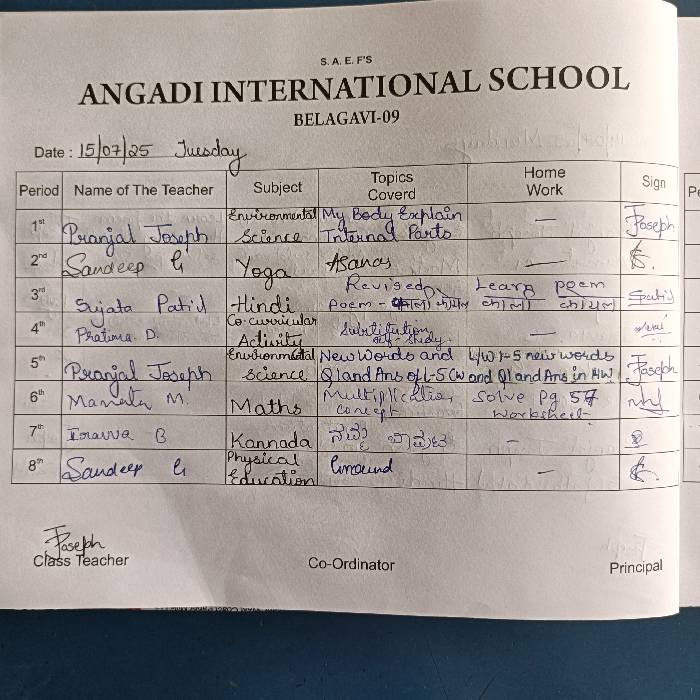 S. A. E. F'S
ANGADI INTERNATIONAL SCHOOL
BELAGAVI-09
Date : 15/07/25 Tuesday
Period Name of The Teacher Subject Topics Coverd Home Work Sign
1st Pranjal Joseph Environmental Science My Body Explain Internal Parts — Joseph
2nd Sandeep G Yoga Asanas —
3rd Sujata Patil Hindi Revised poem - काला कोयल Learn poem काला कोयल Spatil
4th Pratima D. Co-curricular Activity Substitution self-study. —
5th Pranjal Joseph Environmental Science New Words and Q1 and Ans of L-5 CW L/W L-5 new words and Q1 and Ans in HW Joseph
6th Mamata M. Maths Multiplication concept Solve Pg 57 worksheet
7th Irawwa B Kannada ನಮ್ಮ –
8th Sandeep G Physical Education Ground —
Joseph
Class Teacher Co-Ordinator Principal